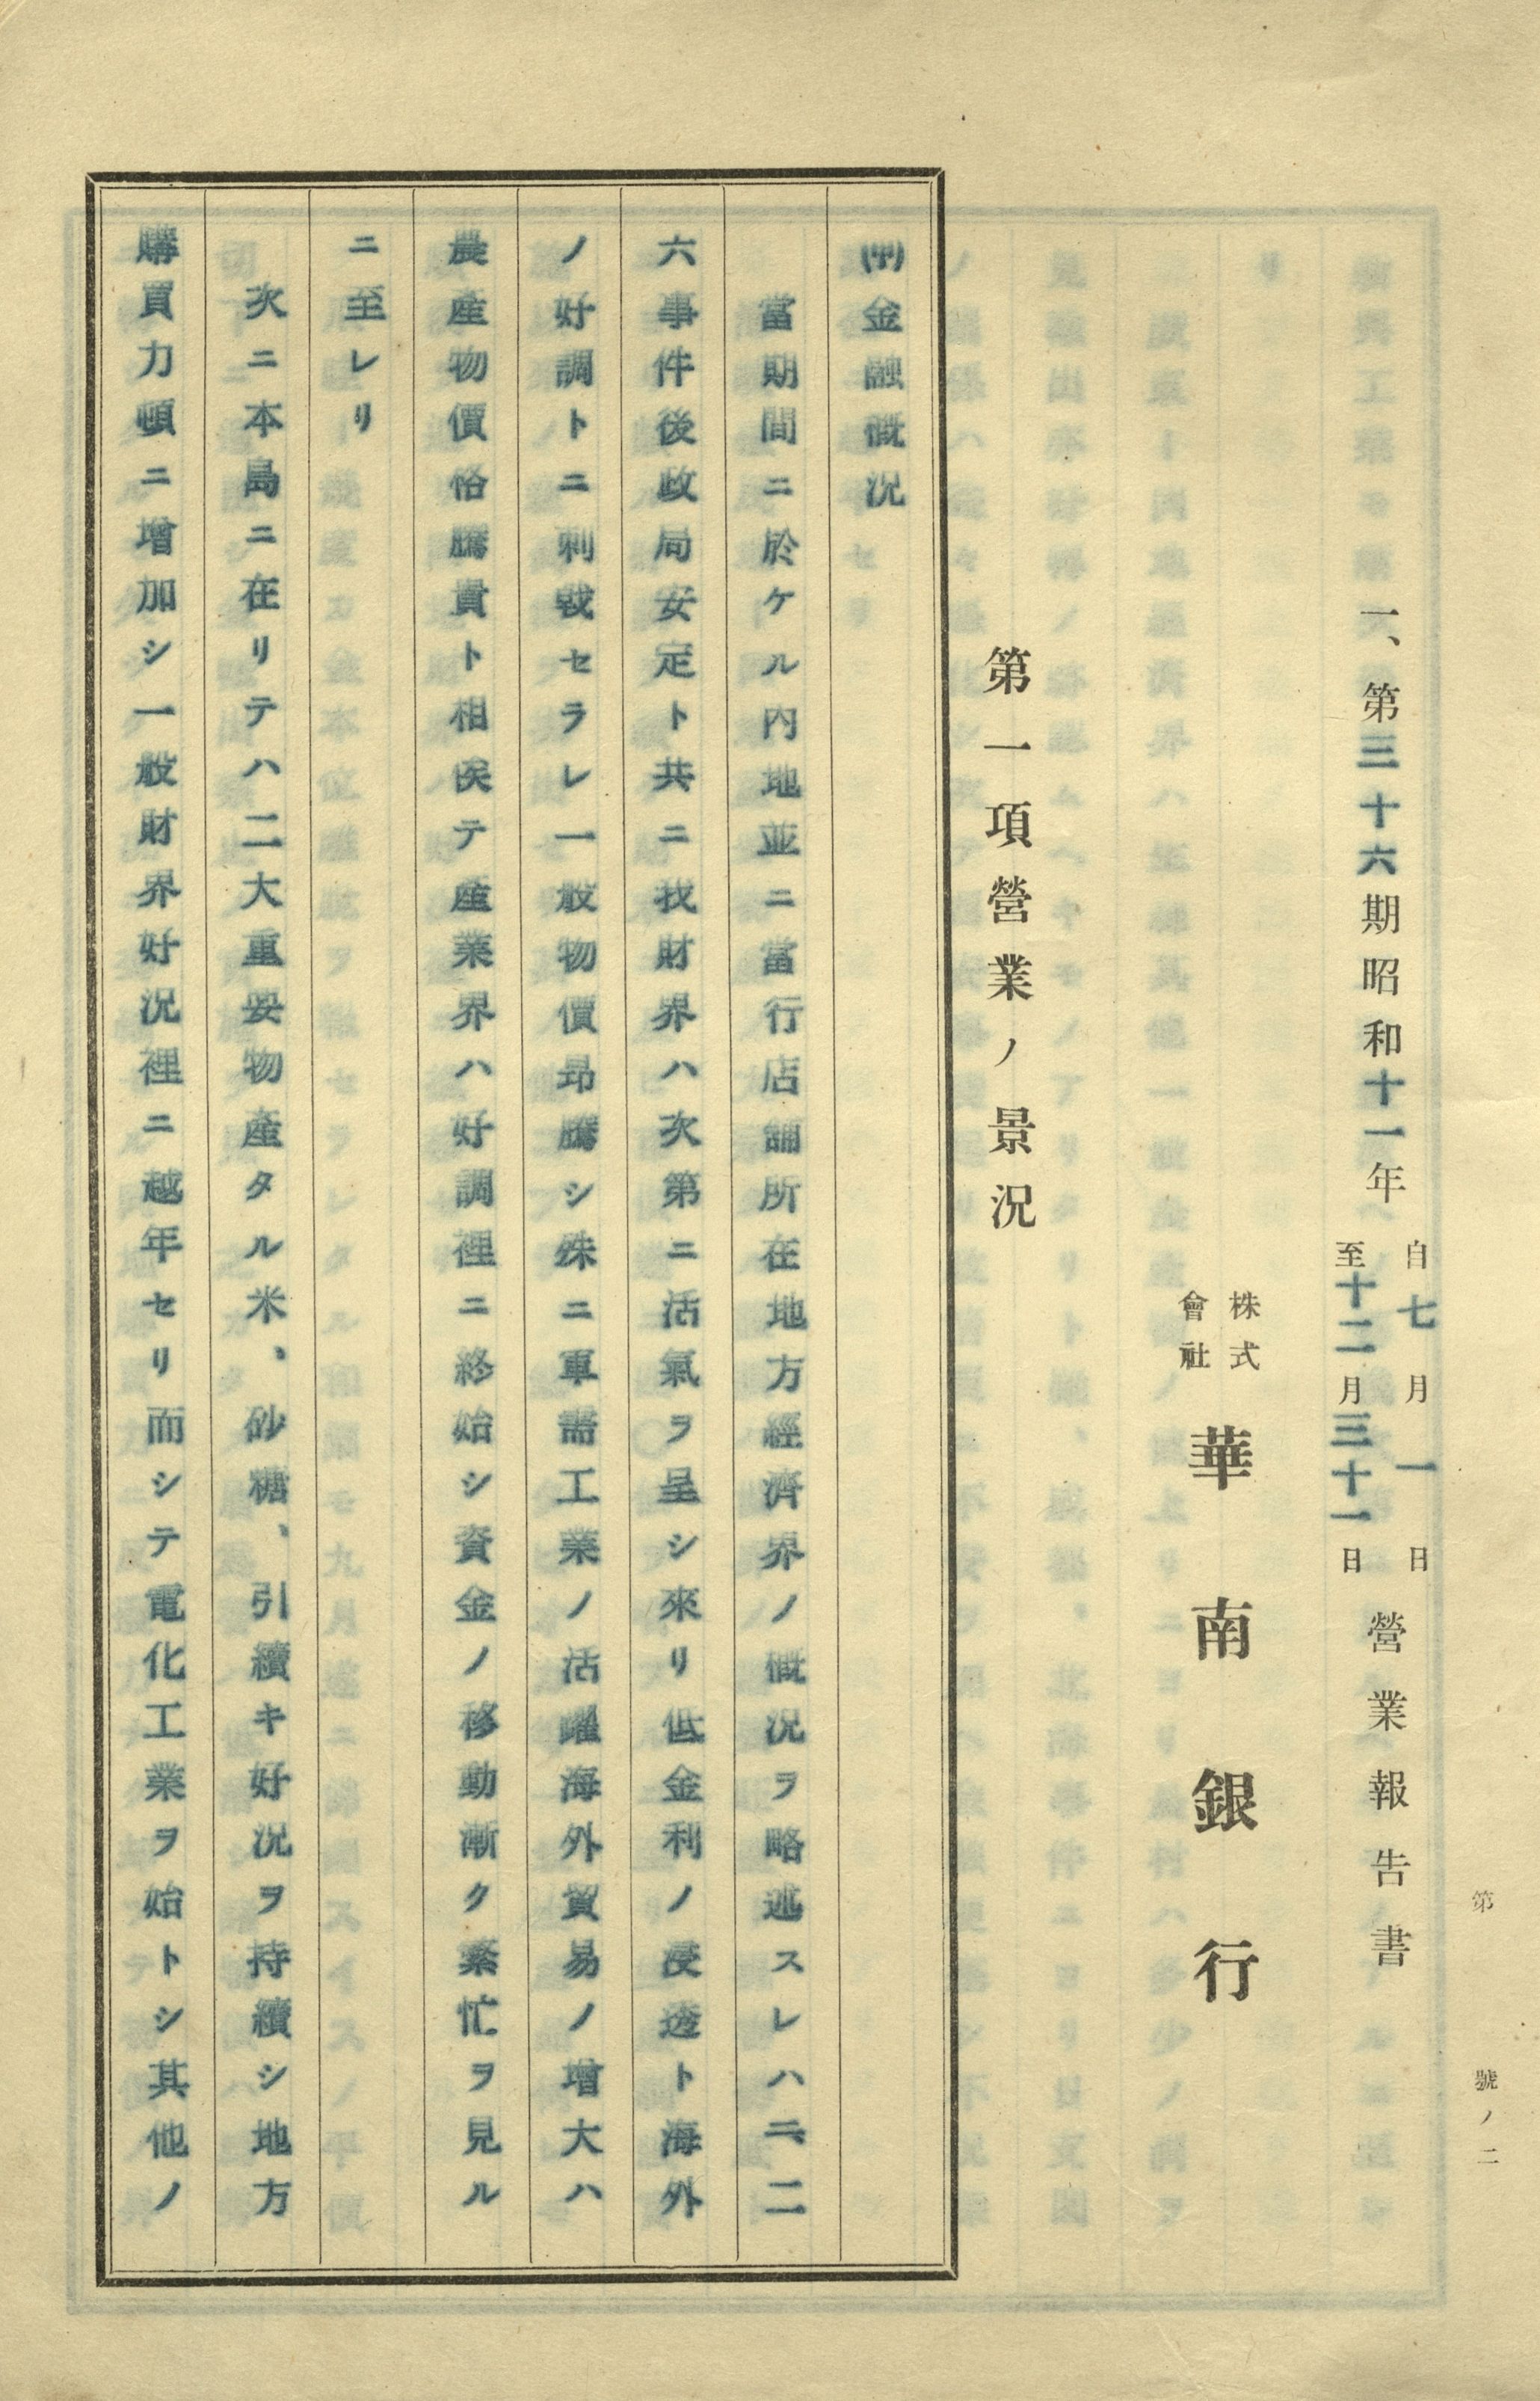 第　號ノ二
一、第三十六期昭和十一年自七月一日至十二月三十一日營業報告書
株式會社華南銀行
第一項營業ノ景況
(甲)金融概況
當期間ニ於ケル內地並ニ當行店舖所在地方經濟界ノ概況ヲ略述スレハ二、二
六事件後政局安定ト共ニ我財界ハ次第ニ活氣ヲ呈シ來リ低金利ノ浸透ト海外
ノ好調トニ刺戟セラレ一般物價昻騰シ殊ニ軍需工業ノ活躍海外貿易ノ增大ハ
農產物價格騰貴ト相俟テ產業界ハ好調裡ニ終始シ資金ノ移動漸ク繁忙ヲ見ル
ニ至レリ
次ニ本島ニ在リテハ二大重要物產タル米、砂糖、引續キ好況ヲ持續シ地方
購買力頓ニ增加シ一般財界好況裡ニ越年セリ而シテ電化工業ヲ始トシ其他ノ